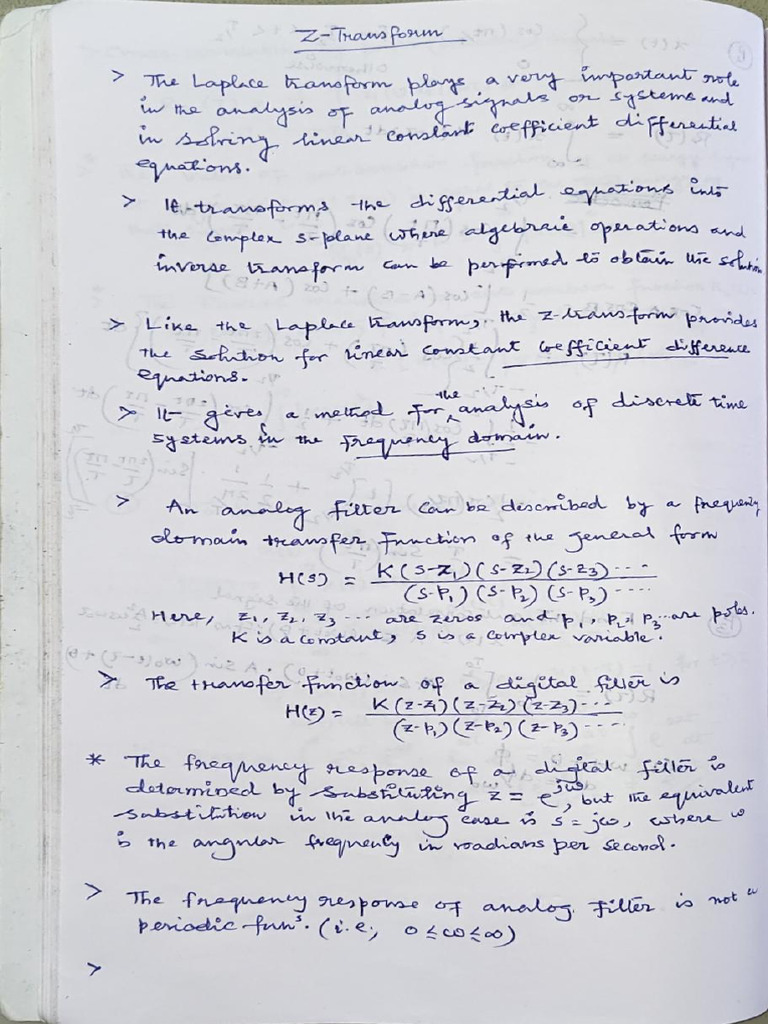 Z-Transform
> The Laplace transform plays a very important role
in the analysis of analog signals or systems and
in solving linear constant coefficient differential
equations.
> It transforms the differential equations into
the complex s-plane where algebraic operations and
inverse transform can be performed to obtain the solution
> Like the Laplace transform, the z-transform provides
the solution for linear constant coefficient difference
equations.
> It gives a method for the analysis of discrete time
systems in the frequency domain.
> An analog filter can be described by a frequency
domain transfer function of the general form
H(s) = K(s-z₁)(s-z₂)(s-z₃)....
(s-p₁)(s-p₂)(s-p₃).....
Here, z₁, z₂, z₃ ... are zeros and p₁, p₂, p₃... are poles.
K is a constant, s is a complex variable.
> The transfer function of a digital filter is
H(z) = K(z-z₁)(z-z₂)(z-z₃)....
(z-p₁)(z-p₂)(z-p₃)....
* The frequency response of a digital filter is
determined by substituting z = e^jω, but the equivalent
substitution in the analog case is s = jω, where ω
is the angular frequency in radians per second.
> The frequency response of analog filter is not a
periodic funⁿ. (i.e., 0 ≤ ω ≤ ∞)
>